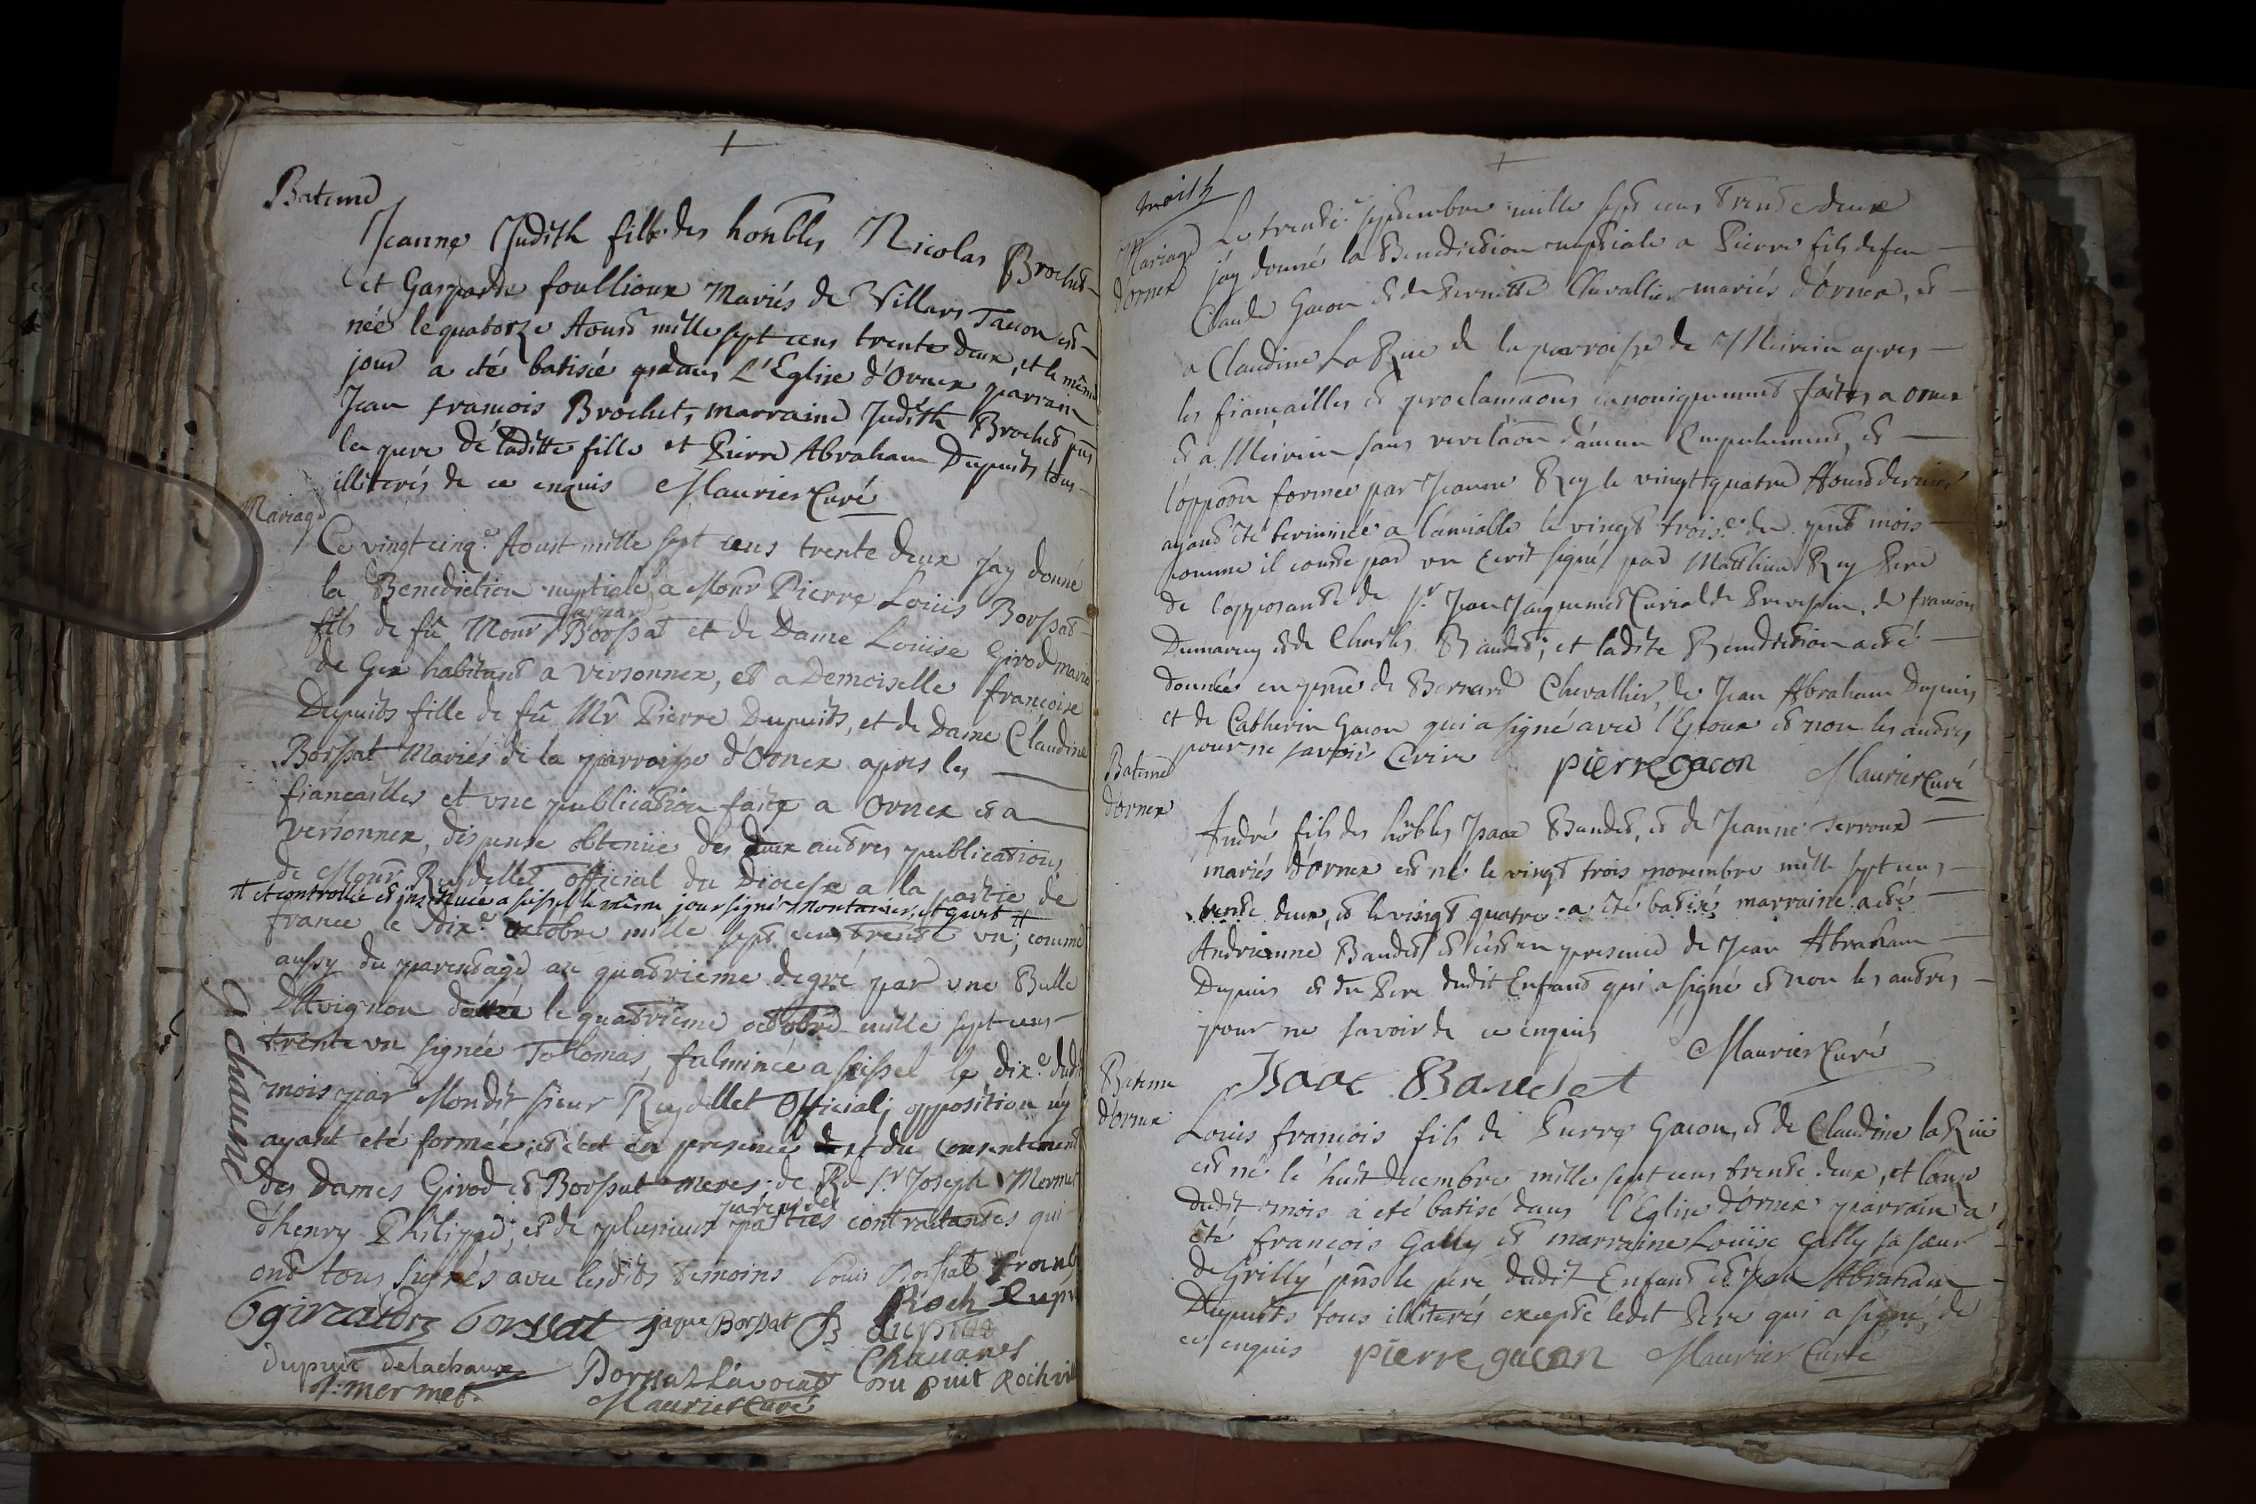 Bateme
Jeanne Judith fille des honbles Nicolas Brochet
et Gasparde foullioux Mariés de Villars Tacon est
née le quatorze Aoust mille sept cens trente deux, et le même
jour a été batisée dans L'Eglise d'Ornex parrain
Jean francois Brochet, marraine Judith Brochet pns
le pere de laditte fille et Pierre Abraham Dupuits tous
illiterés de ce enquis Maurier Curé
Mariage
Ce vingt cinq.e Aoust mille sept cens trente deux jay donné
la Benediction nuptiale a Monr Pierre Louis Borssat
fils de fû Monr Gaspard Borssat et de Dame Louise Girod mariés
de Gex habitant a Versonnex, et a Demoiselle francoise
Dupuits fille de fû Mr Pierre Dupuits, et de Dame Claudine
Borssat Mariés de la parroisse d'Ornex apres les
fiancailles et une publication faite a Ornex et a
Versonnex, dispense obtenüe des deux autres publications
de Monr Reydellet official du Diocese a la partie de
# et controllée et insinuée a seissel le même jour signé Montanier, et #
france le dix.e octobre mille sept cens trente un; comme
aussy du parentage au quatrième degré par une Bulle
d'Avignon dattée le quatrième octobre mille sept cens
trente un signée Tolomas, fulminée a seissel le dix.e dud.
mois par Mondit sieur Reydellet Official; opposition ny
ayant eté formée; et c'est en presence et du consentement
des Dames Girod et Borssat meres; de Rd Sr Joseph Mermet
d'henry Philippe; et de plusieurs parens des parties contractantes qui
ont tous signés avec lesdits temoins Louis Borssat
Borssat jaque Borssat
Roch Dupu
dupuit
dupuit delachaux
Chavanes
J. mermet
Borssat L'avocat
Du puit Rochvi
Maurier Curé
G chaune
Mariage
d'Ornex
Le trenti.e septembre mille sept cens trente deux
jay donné la Benediction nuptiale a Pierre fils de feu
Claude Gacon et de Pernette Chevallier mariés d'Ornex, et
a Claudine La Rüe de la parroisse de Meirein apres
les fiancailles et proclamaons canoniquement faites a Ornex
et a Meirein sans revelaon d'aucun Empechement, et
l'opposn formée par Jeanne Rey le vingt quatre Aoust dernier
ayant été terminée a l'amiable le vingt trois.e du pnt mois
comme il conste par un Ecrit signé par Matthieu Rey Pere
de l'opposante de Sr Jean Jaquemet Curial de Prevessin, de francois
Dumarcy et de Charles Baudet; et ladite Benediction a eté
donnée en pnce de Bernard Chevallier, de Jean Abraham Dupuis
et de Catherin Gacon qui a signé avec l'Epoux et non les autres
pour ne savoir Ecrire
pierre gacon Maurier Curé
Bateme
d'Ornex
André fils des honbles Isaac Baudet, et de Jeanne Serroux
mariés d'Ornex est né le vingt trois novembre mille sept cens
trente deux, et le vingt quatre a été batisé, marraine a eté
Andrienne Baudet et c'est en presence de Jean Abraham
Dupuis et du Pere dudit Enfant qui a signé et non les autres
pour ne savoir de ce enquis
Maurier Curé
Isaac Baudet
Bateme
d'Ornex
Louis francois fils de Pierre Gacon, et de Claudine la Rüe
est né le huit decembre mille sept cens trente deux, et l'onze
dudit mois a eté batisé dans l'Eglise d'Ornex parrain a
été francois Gally et marraine Louise Gally sa soeur
de Grilly pns le pere dudit Enfant et Jean Abraham
Dupuits tous illiterés excepté ledit Pere qui a signé, de
ce enquis pierre gacon Maurier Curé